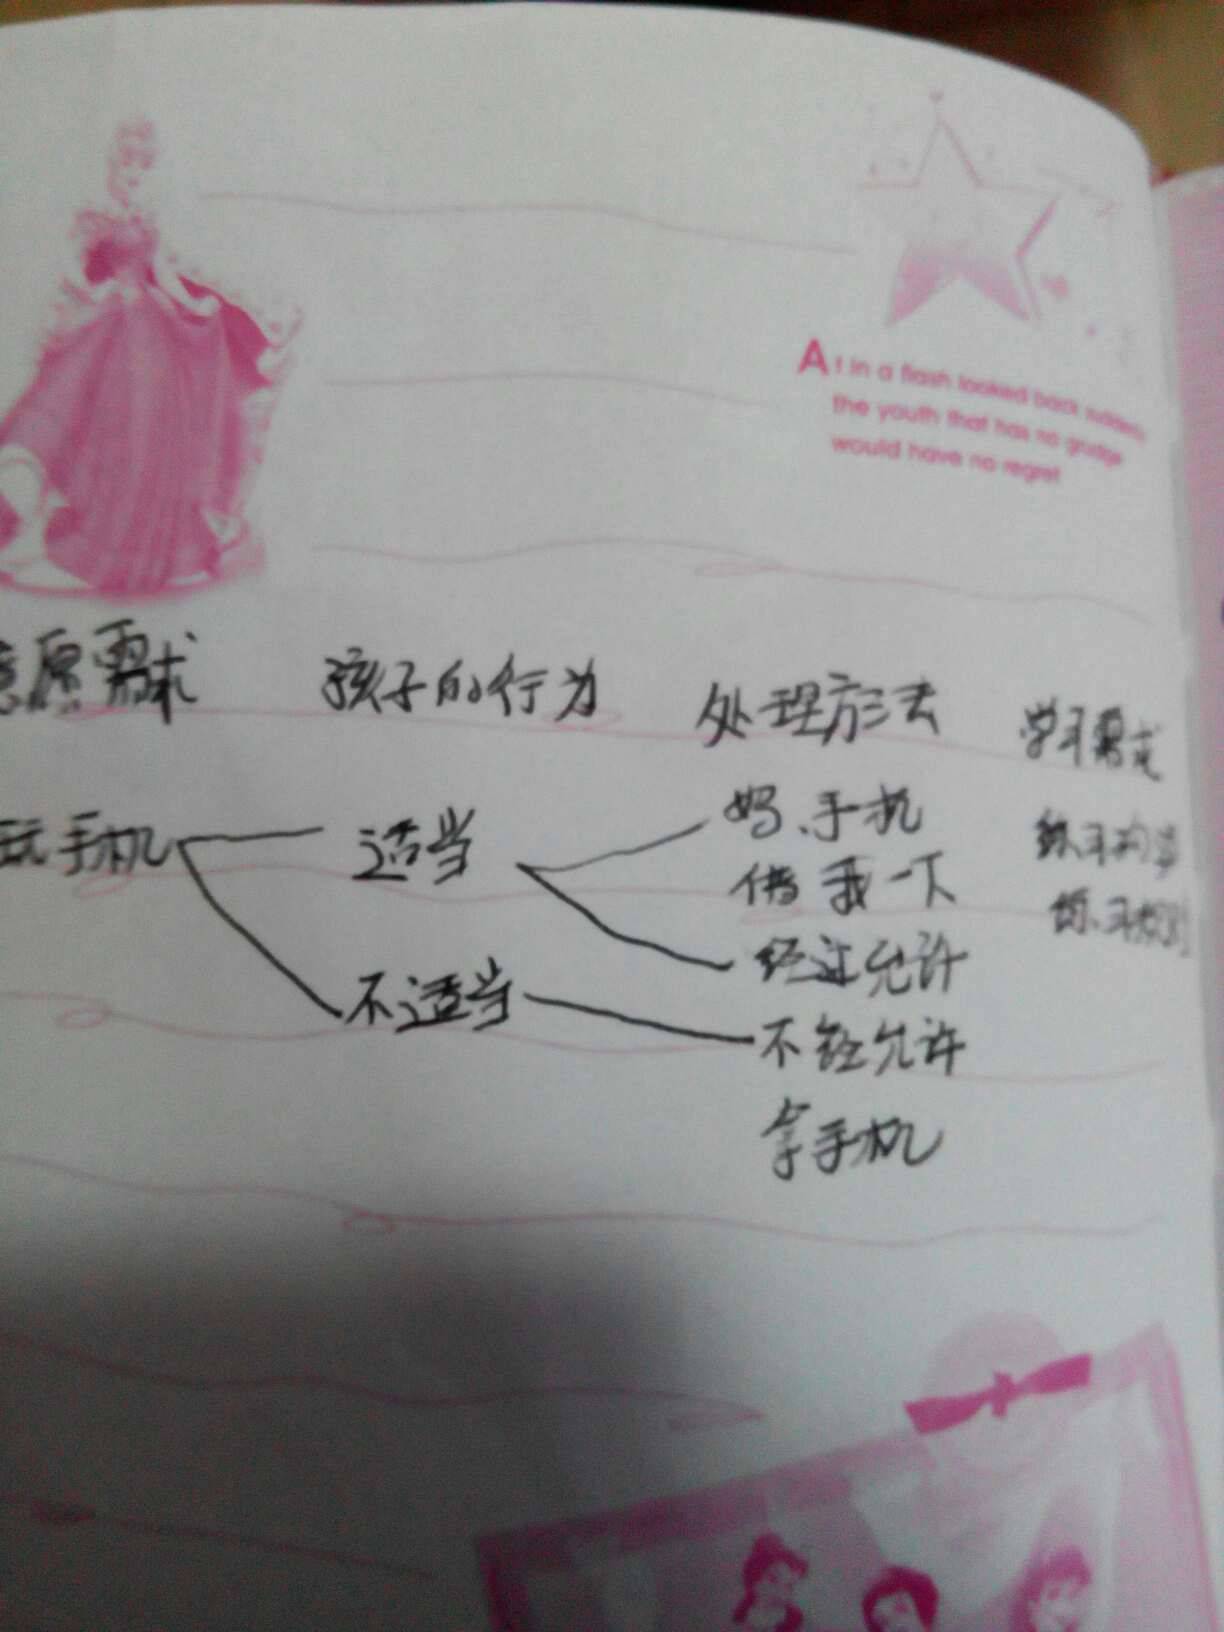 At in a flash looked back suddenly
the youth that has no grudge
would have no regret
意愿需求 孩子的行为 处理方法 学习需求
玩手机 适当 妈、手机
借我一下
经过允许
不适当 不经允许
拿手机
练习
练习规则